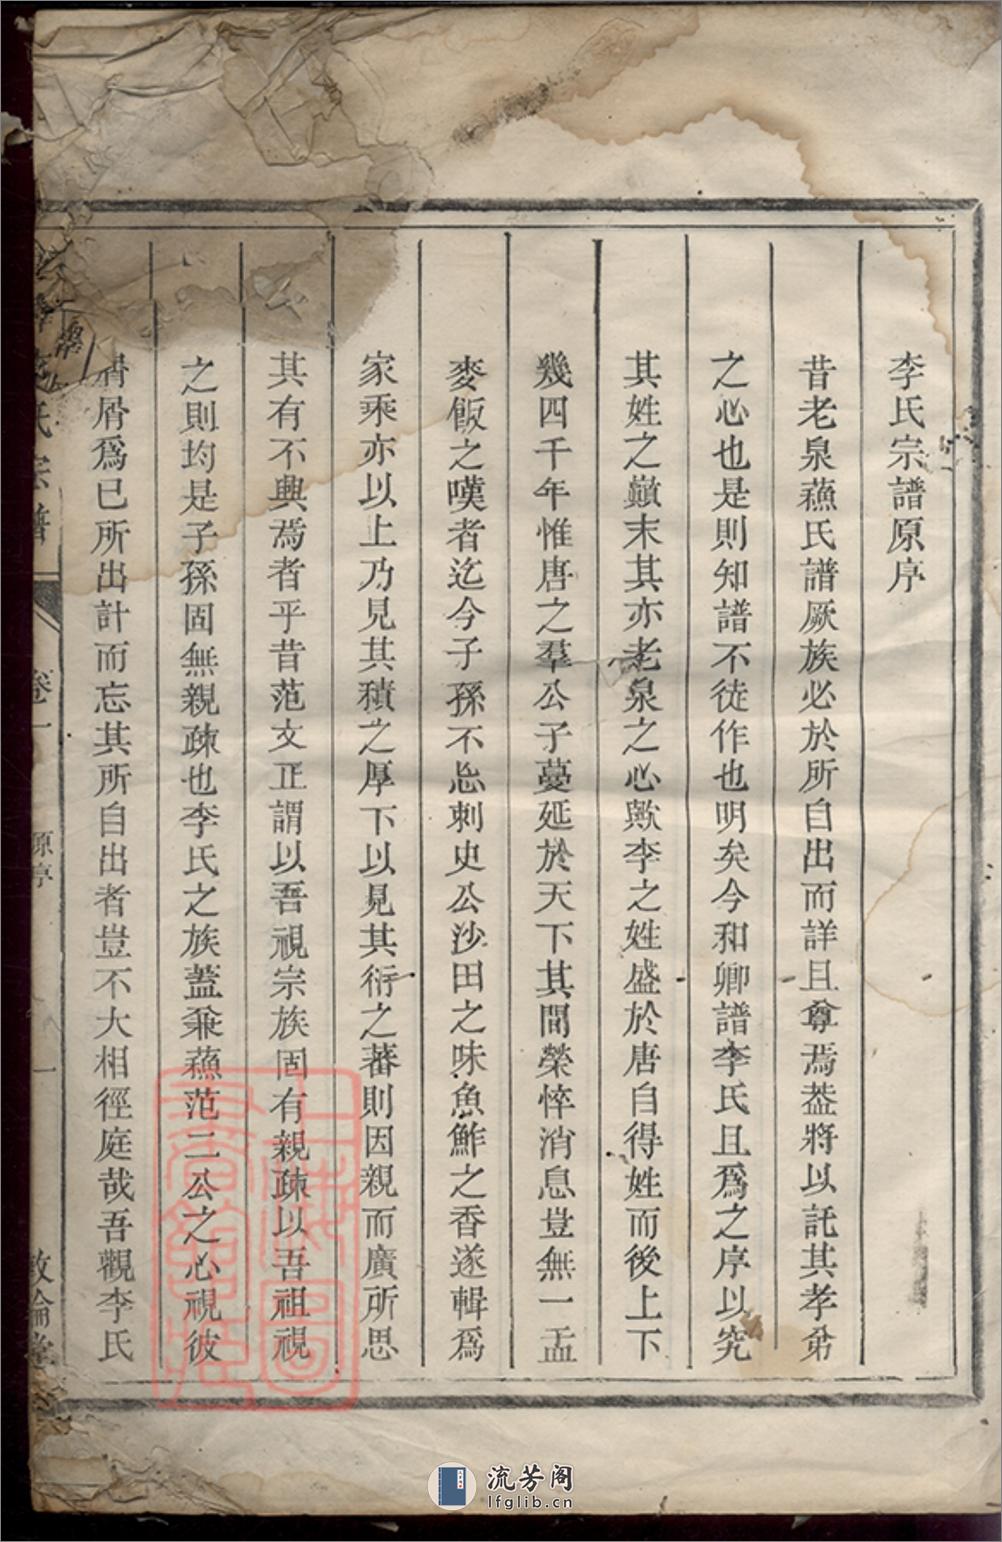 李氏宗譜原序
昔老泉蘓氏譜厥族必於所自出而詳且尊焉葢將以託其孝弟
之心也是則知譜不徒作也明矣今和卿譜李氏且爲之序以究
其姓之巔末其亦老泉之心歟李之姓盛於唐自得姓而後上下
幾四千年惟唐之羣公子蔓延於天下其間榮悴消息豈無一盂
麥飯之嘆者迄今子孫不忘刺史公沙田之味魚鮓之香遂輯爲
家乘亦以上乃見其積之厚下以見其衍之蕃則因親而廣所思
其有不興焉者乎昔范文正謂以吾視宗族固有親疎以吾祖視
之則均是子孫固無親疎也李氏之族蓋兼蘓范二公之心視彼
屑屑爲已所出計而忘其所自出者豈不大相徑庭哉吾觀李氏
氏宗譜
卷一
原序
一
敦倫堂
上海圖書館藏
流芳阁
lfglib.cn